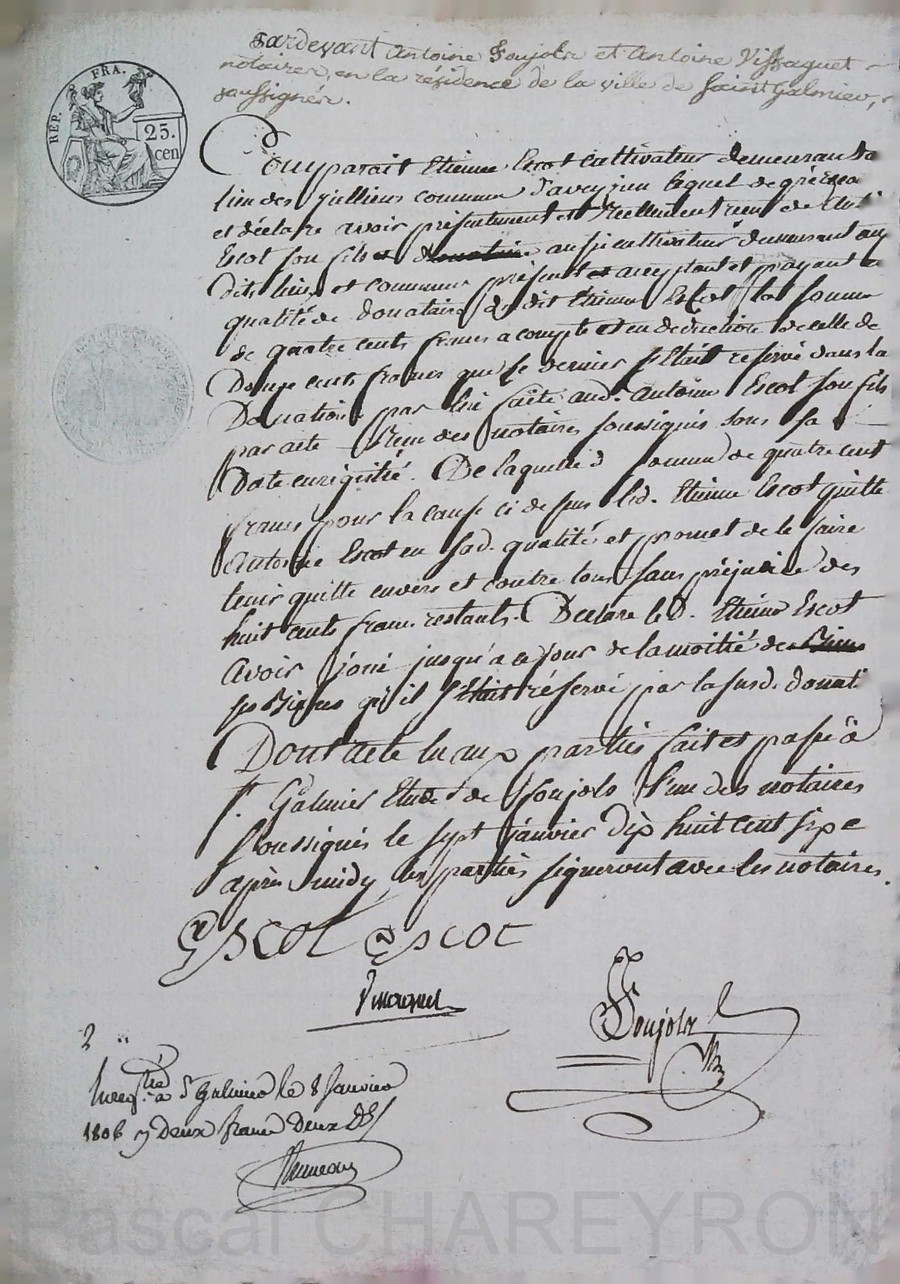 Pardevant Antoine Poujols et Antoine Vissaguet
notaires, en la résidence de la ville de Saint Galmier,
soussignés.
REP. FRA.
25.
cen
Comparait Etienne Escot cultivateur demeurant au
lieu des Julliens commune d'aveyzieu lequel de gré
et déclare avoir présentement et réellement reçu de Ant
Escot son fils aussi cultivateur demeurant au
dit lieu et commune présent et acceptant et payant en
qualité de donataire dudit Etienne Escot la somme
de quatre cents francs a compte et en déduction de celle de
Douze cents francs que ce dernier s'était réservé dans la
Donation par lui faite aud. antoine Escot son fils
par acte Reçu des notaires soussignés sous sa
Date enregistré. De laquelle somme de quatre cent
francs pour la cause ci dessus led. Etienne Escot quitte
Antoine Escot en sad. qualité et promet de le faire
tenir quitte envers et contre tous sans préjudice des
huit cents francs restants. Declare le D. Etienne Escot
avoir joui jusqu'a ce jour de la moitié de
ses Biens qu'il s'était réservé par la susd. donati
Dont acte lu aux parties fait et passé à
St. Galmier Etude de Poujols l'un des notaires
soussignés le sept janvier dix huit cent six
après midy les parties signeront avec les notaires.
Escot Escot
Vissaguet
Poujols
2
Enregtré à St Galmier le 8 Janvier
1806 Deux francs Deux
Pascal CHAREYRON